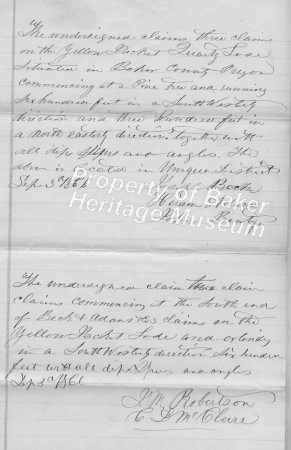 The undersigned claims three claims
on the Yellow Pocket Quartz Lode
Situated in Baker County Oregon
commencing at a Pine tree and running
Six hundred feet in a South Westerly
direction and three hundred feet in
a North easterly direction together with
all dips spurs and angles. The
above is located in Unique District
Sep. 3d 1866
Property of Baker
Heritage Museum
The undersigned claim three claim
claims commencing at the South end
of Beck & Adams Co claims on the
Yellow Pocket Lode and extends
in a South Westerly direction Six hundred
feet with all dips Spurs and angles
Sep 3d 1866
J. M. Robertson
E. D. McClure